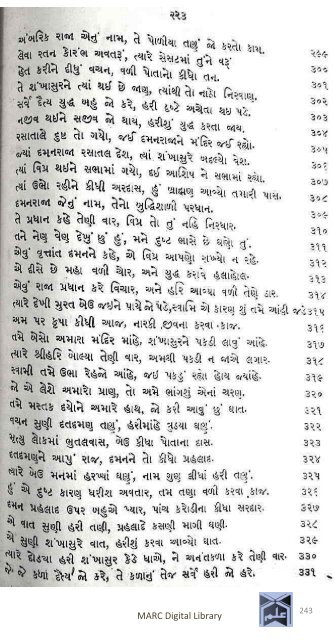 ૨૨૩
અંબરિક રાજા એનું નામ, તે પોળીયા તણું જે કરતો કામ.
તેવા રતન કારંભ અવતરૂં, ત્યારે સેસટમાં તુંને વરૂં ૨૯૯
હેત કરીને દીધું વચન, વળી પોતાનો કીધો તન. ૩૦૦
તે શંખાસુરને ત્યાં થઈ છે જાણ, ત્યાંથી તો નાઠો નિરવાણ. ૩૦૧
સર્વે દૈત્ય યુદ્ધ બહુ જો કરે, હરી દૃષ્ટે અચેતા થઈ પડે. ૩૦૨
નજીવ થઈને સજીવ જો થાય, હરીશું યુદ્ધ કરતા જાય. ૩૦૩
રસાતાલે દુષ્ટ તો ગયો, જઈ દમનરાજાને મંદિર જઈ રહ્યો. ૩૦૪
જ્યાં દમનરાજા રસાતલ દેશ, ત્યાં શંખાસુરે બદલ્યો વેશ. ૩૦૫
ત્યાં વિપ્ર થઈને સભામાં ગયો, દઈ આશિષ ને સભામાં રહ્યો. ૩૦૬
ત્યાં ઉભો રહીને કીધી અરદાસ, હું બ્રાહ્મણ આવ્યો તમારી પાસ. ૩૦૭
દમનરાજા જેનું નામ, તેનો બુદ્ધિશાળી પરધાન. ૩૦૮
તે પ્રધાન કહે તેણી વાર, વિપ્ર તો તું નહિ નિરધાર. ૩૦૯
તને નેણ વેણ દેખું છું હું, મને દુષ્ટ ભાસે છે ઘણો તું. ૩૧૦
એવું વૃત્તાંત દમનને કહે, એ વિપ્ર આપણો રાખ્યો ન રહે. ૩૧૧
એ દીસે છે મહા વળી ચોર, અને યુદ્ધ કરાવે હલાહોલ. ૩૧૨
એવું રાજા પ્રધાન કરે વિચાર, અને હરિ આવ્યા વળી તેણે ઠાર. ૩૧૩
ત્યારે દેખી મુરત બેઉ જઈને પાયે જો પડે, સ્વામિ એ કારણ શું તમે આંહી જડે ૩૧૫
અમ પર કૃપા કીધી આજ, નારકી જીવના કરવા કાજ. ૩૧૬
તમે બેસો અમારા મંદિર માંહે, શંખાસુરને પકડી લાવું આંહે. ૩૧૭
ત્યારે શ્રીહરિ બોલ્યા તેણી વાર, અમથી પકડી ન જાએ લગાર. ૩૧૮
સ્વામી તમે ઉભા રેહેજો આંહે, જઈ પકડું રહ્યો હોય જ્યાંહે. ૩૧૯
જો એ લેશે અમારો પ્રાણ, તો અમે ભાંગશું એનાં શરણ. ૩૨૦
તમે મસ્તક દયોને અમારે હાથ, જો કરી આવું છું ઘાત. ૩૨૧
વચન સુણી દતદમણ તણું, હરીમાંહે ત્રુડયા ઘણું. ૩૨૨
મૃત્યુ લોકમાં ભુતલવાસ, બેઉ કીધા પોતાના દાસ. ૩૨૩
દતદમણને આપું રાજ, દમનને તો કીધો પ્રહલાદ. ૩૨૪
ત્યારે બેઉ મનમાં હરખ્યાં ઘણું, નામ શુણ લીધાં હરી તણું. ૩૨૫
હું એ દુષ્ટ કારણ ધરીશ અવતાર, તમ તણા વળી કરવા કાજ. ૩૨૬
દમન પ્રહલાદ ઉપર બહુએ પ્યાર, પાંચ કરોડીના કીધા સરદાર. ૩૨૭
એ વાત સુણી હરી તણી, પ્રહલાદે કસણી માગી ઘણી. ૩૨૮
એ સુણી શંખાસુરે વાત, હરીશું કરવા આવ્યો ઘાત. ૩૨૯
ત્યારે દોડયા હરી શંખાસુર કેડે ધાએ, ને અનંતકળા કરે તેણી વાર. ૩૩૦
જે જે કળાં દૈત્ય જો કરે, તે કળાનું તેજ સર્વે હરી જો હરે. ૩૩૧
MARC Digital Library
243